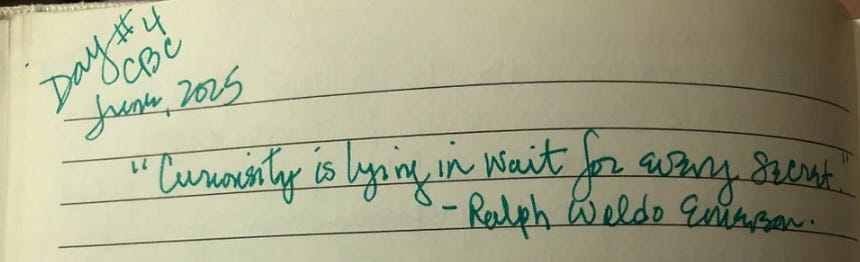 Day #4
CBC
June, 2025
"Curiosity is lying in wait for every secret."
- Ralph Waldo Emerson.